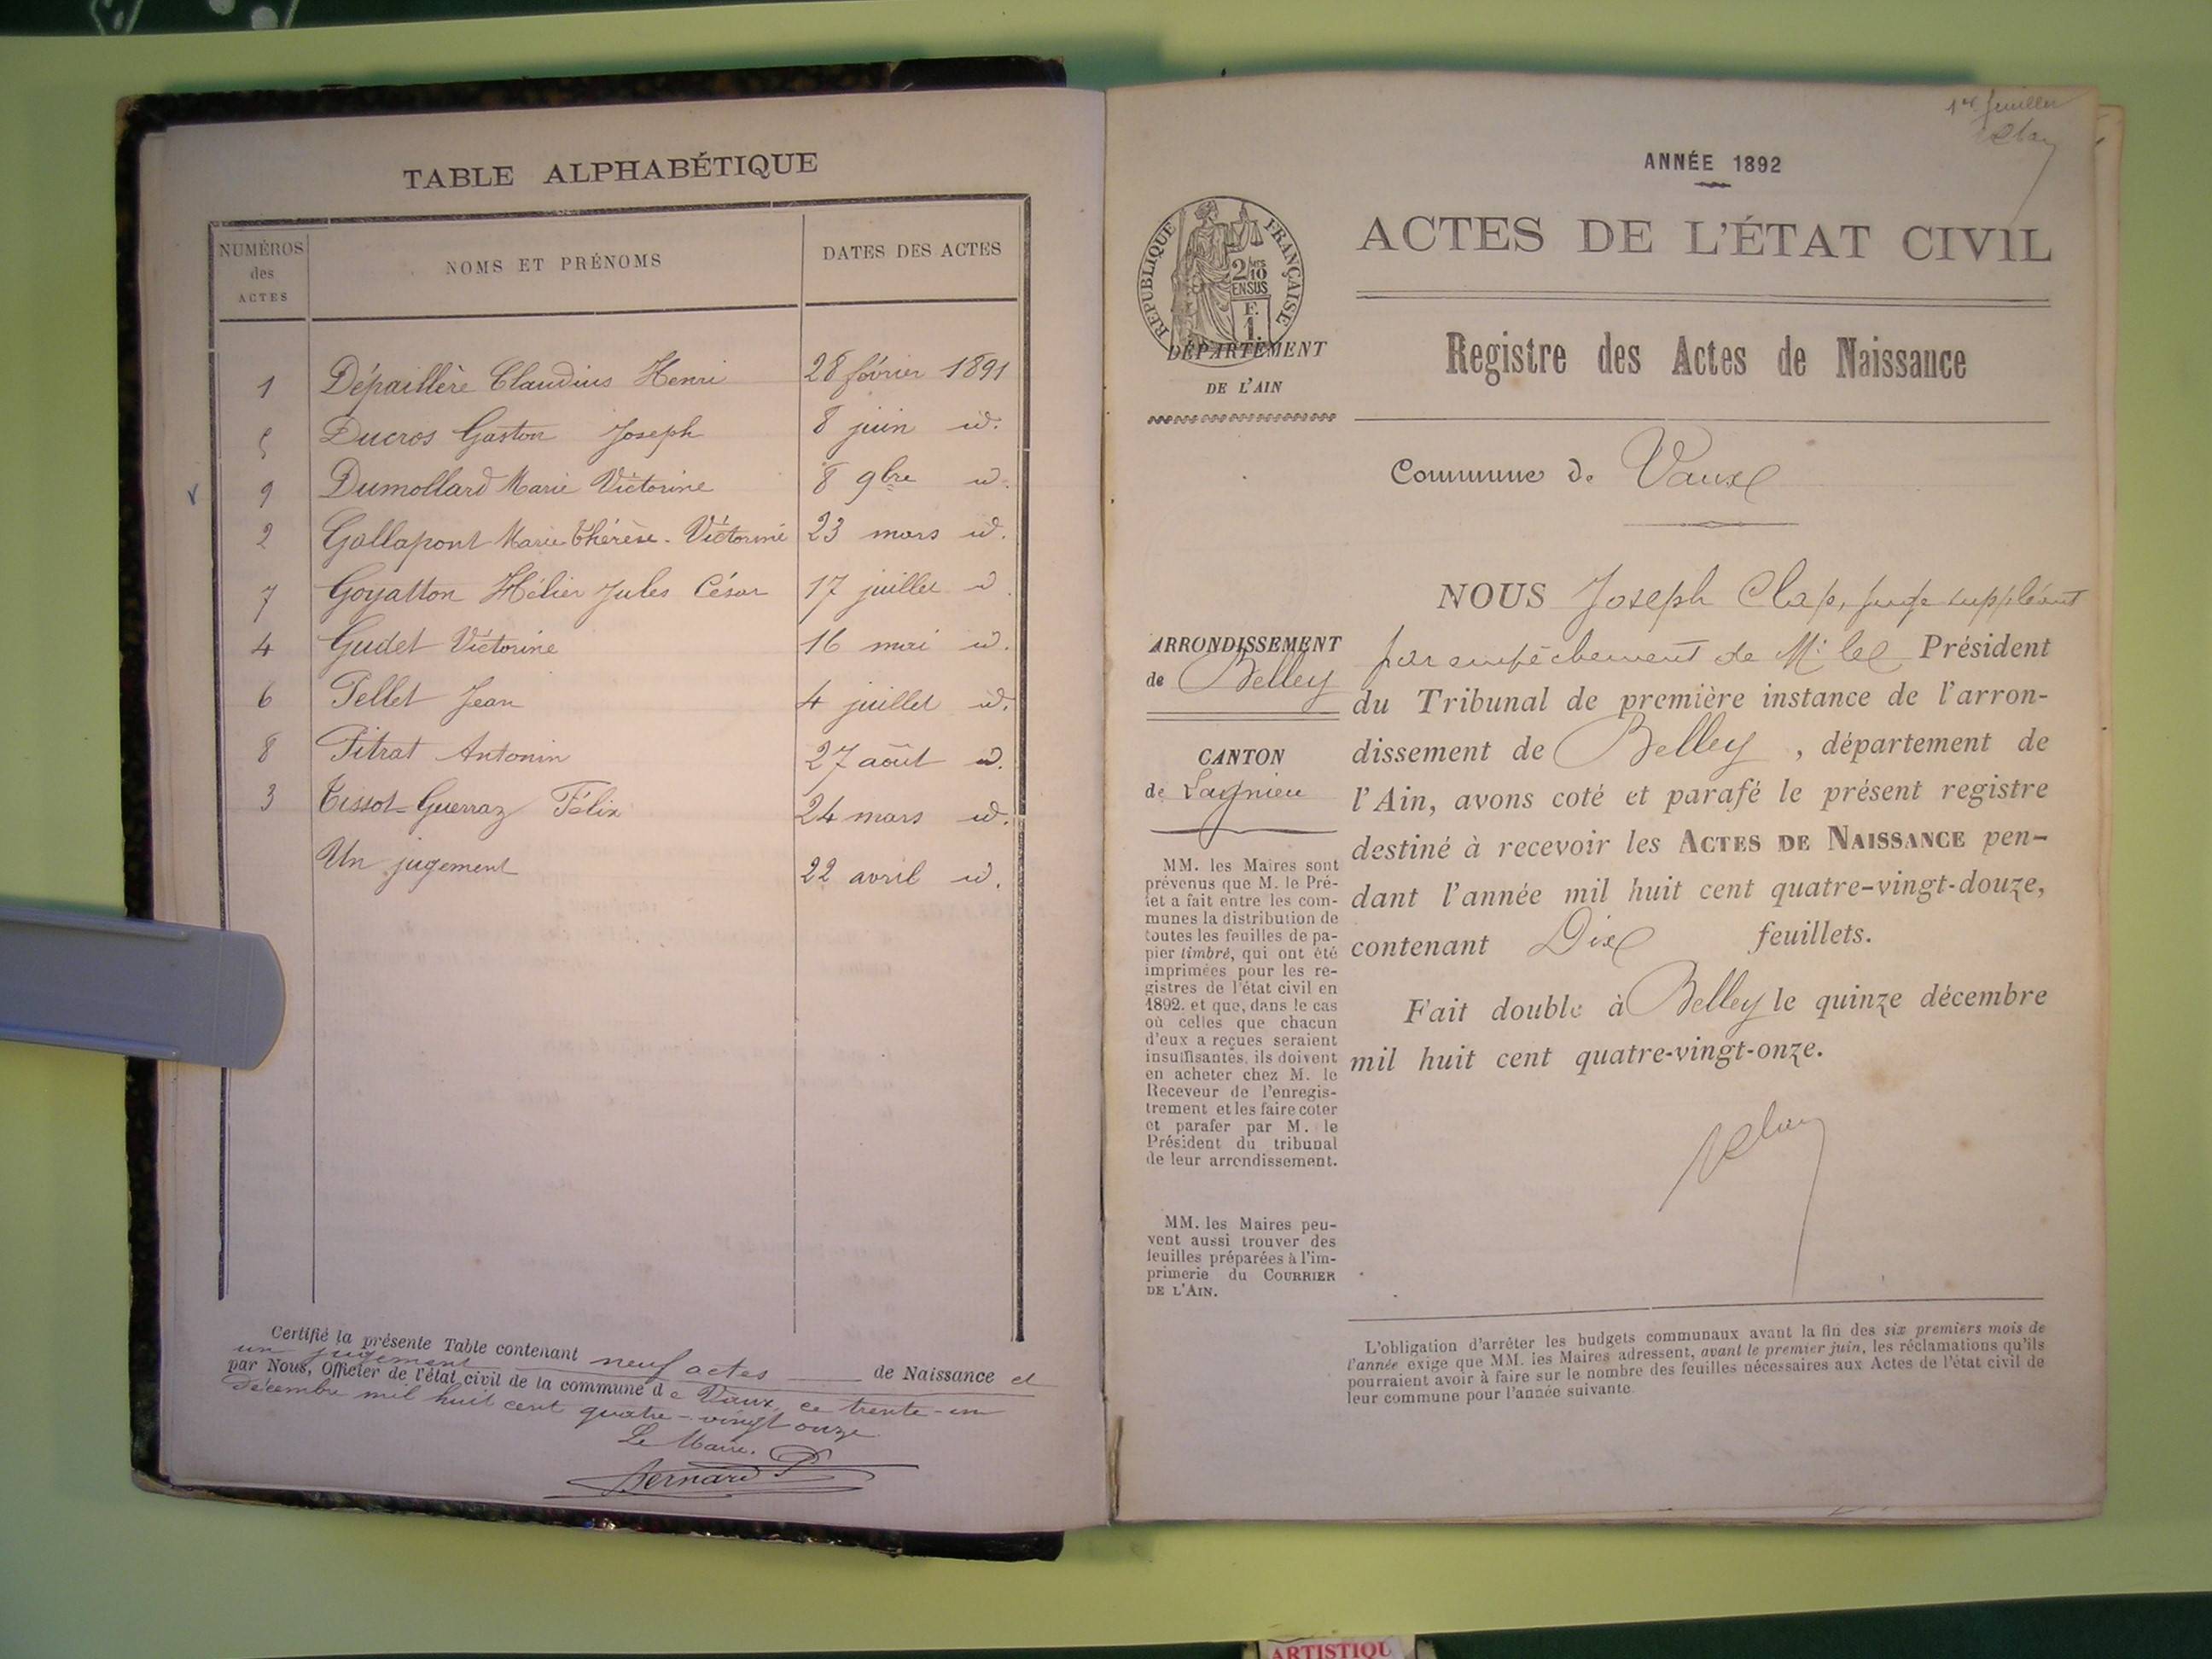 TABLE ALPHABÉTIQUE
NUMÉROS des ACTES
NOMS ET PRÉNOMS
DATES DES ACTES
1 Dépaillère Claudius Henri 28 février 1891
5 Ducros Gaston Joseph 8 juin id.
9 Dumollard Marie Victorine 8 9bre id.
2 Gallapont Marie Thérèse-Victorine 23 mars id.
7 Goyatton Hélier Jules César 17 juillet id.
4 Gudet Victorine 16 mai id.
6 Pellet Jean 4 juillet id.
8 Pitrat Antonin 27 août id.
3 Tissot-Guerraz Félix 24 mars id.
Un jugement 22 avril id.
Certifié la présente Table contenant neuf actes de Naissance et
un jugement
par Nous, Officier de l'état civil de la commune de Vaux, ce trente-un
Décembre mil huit cent quatre-vingt onze
Le Maire.
Bernard P
1er feuillet
Clap
ANNÉE 1892
ACTES DE L'ÉTAT CIVIL
RÉPUBLIQUE FRANÇAISE
2/10 EN SUS
F. 1.
DÉPARTEMENT
DE L'AIN
Registre des Actes de Naissance
Commune de Vaux
ARRONDISSEMENT
de Belley
CANTON
de Lagnieu
MM. les Maires sont
prévenus que M. le Pré-
fet a fait entre les com-
munes la distribution de
toutes les feuilles de pa-
pier timbré, qui ont été
imprimées pour les re-
gistres de l'état civil en
1892. et que, dans le cas
où celles que chacun
d'eux a reçues seraient
insuffisantes, ils doivent
en acheter chez M. le
Receveur de l'enregis-
trement et les faire coter
et parafer par M. le
Président du tribunal
de leur arrondissement.
MM. les Maires peu-
vent aussi trouver des
feuilles préparées à l'im-
primerie du COURRIER
DE L'AIN.
NOUS Joseph Clap, juge suppléant
par empêchement de Mr le Président
du Tribunal de première instance de l'arron-
dissement de Belley, département de
l'Ain, avons coté et parafé le présent registre
destiné à recevoir les ACTES DE NAISSANCE pen-
dant l'année mil huit cent quatre-vingt-douze,
contenant Dix feuillets.
Fait double à Belley le quinze décembre
mil huit cent quatre-vingt-onze.
Clap
L'obligation d'arrêter les budgets communaux avant la fin des six premiers mois de
l'année exige que MM. les Maires adressent, avant le premier juin, les réclamations qu'ils
pourraient avoir à faire sur le nombre des feuilles nécessaires aux Actes de l'état civil de
leur commune pour l'année suivante.
ARTISTIQU